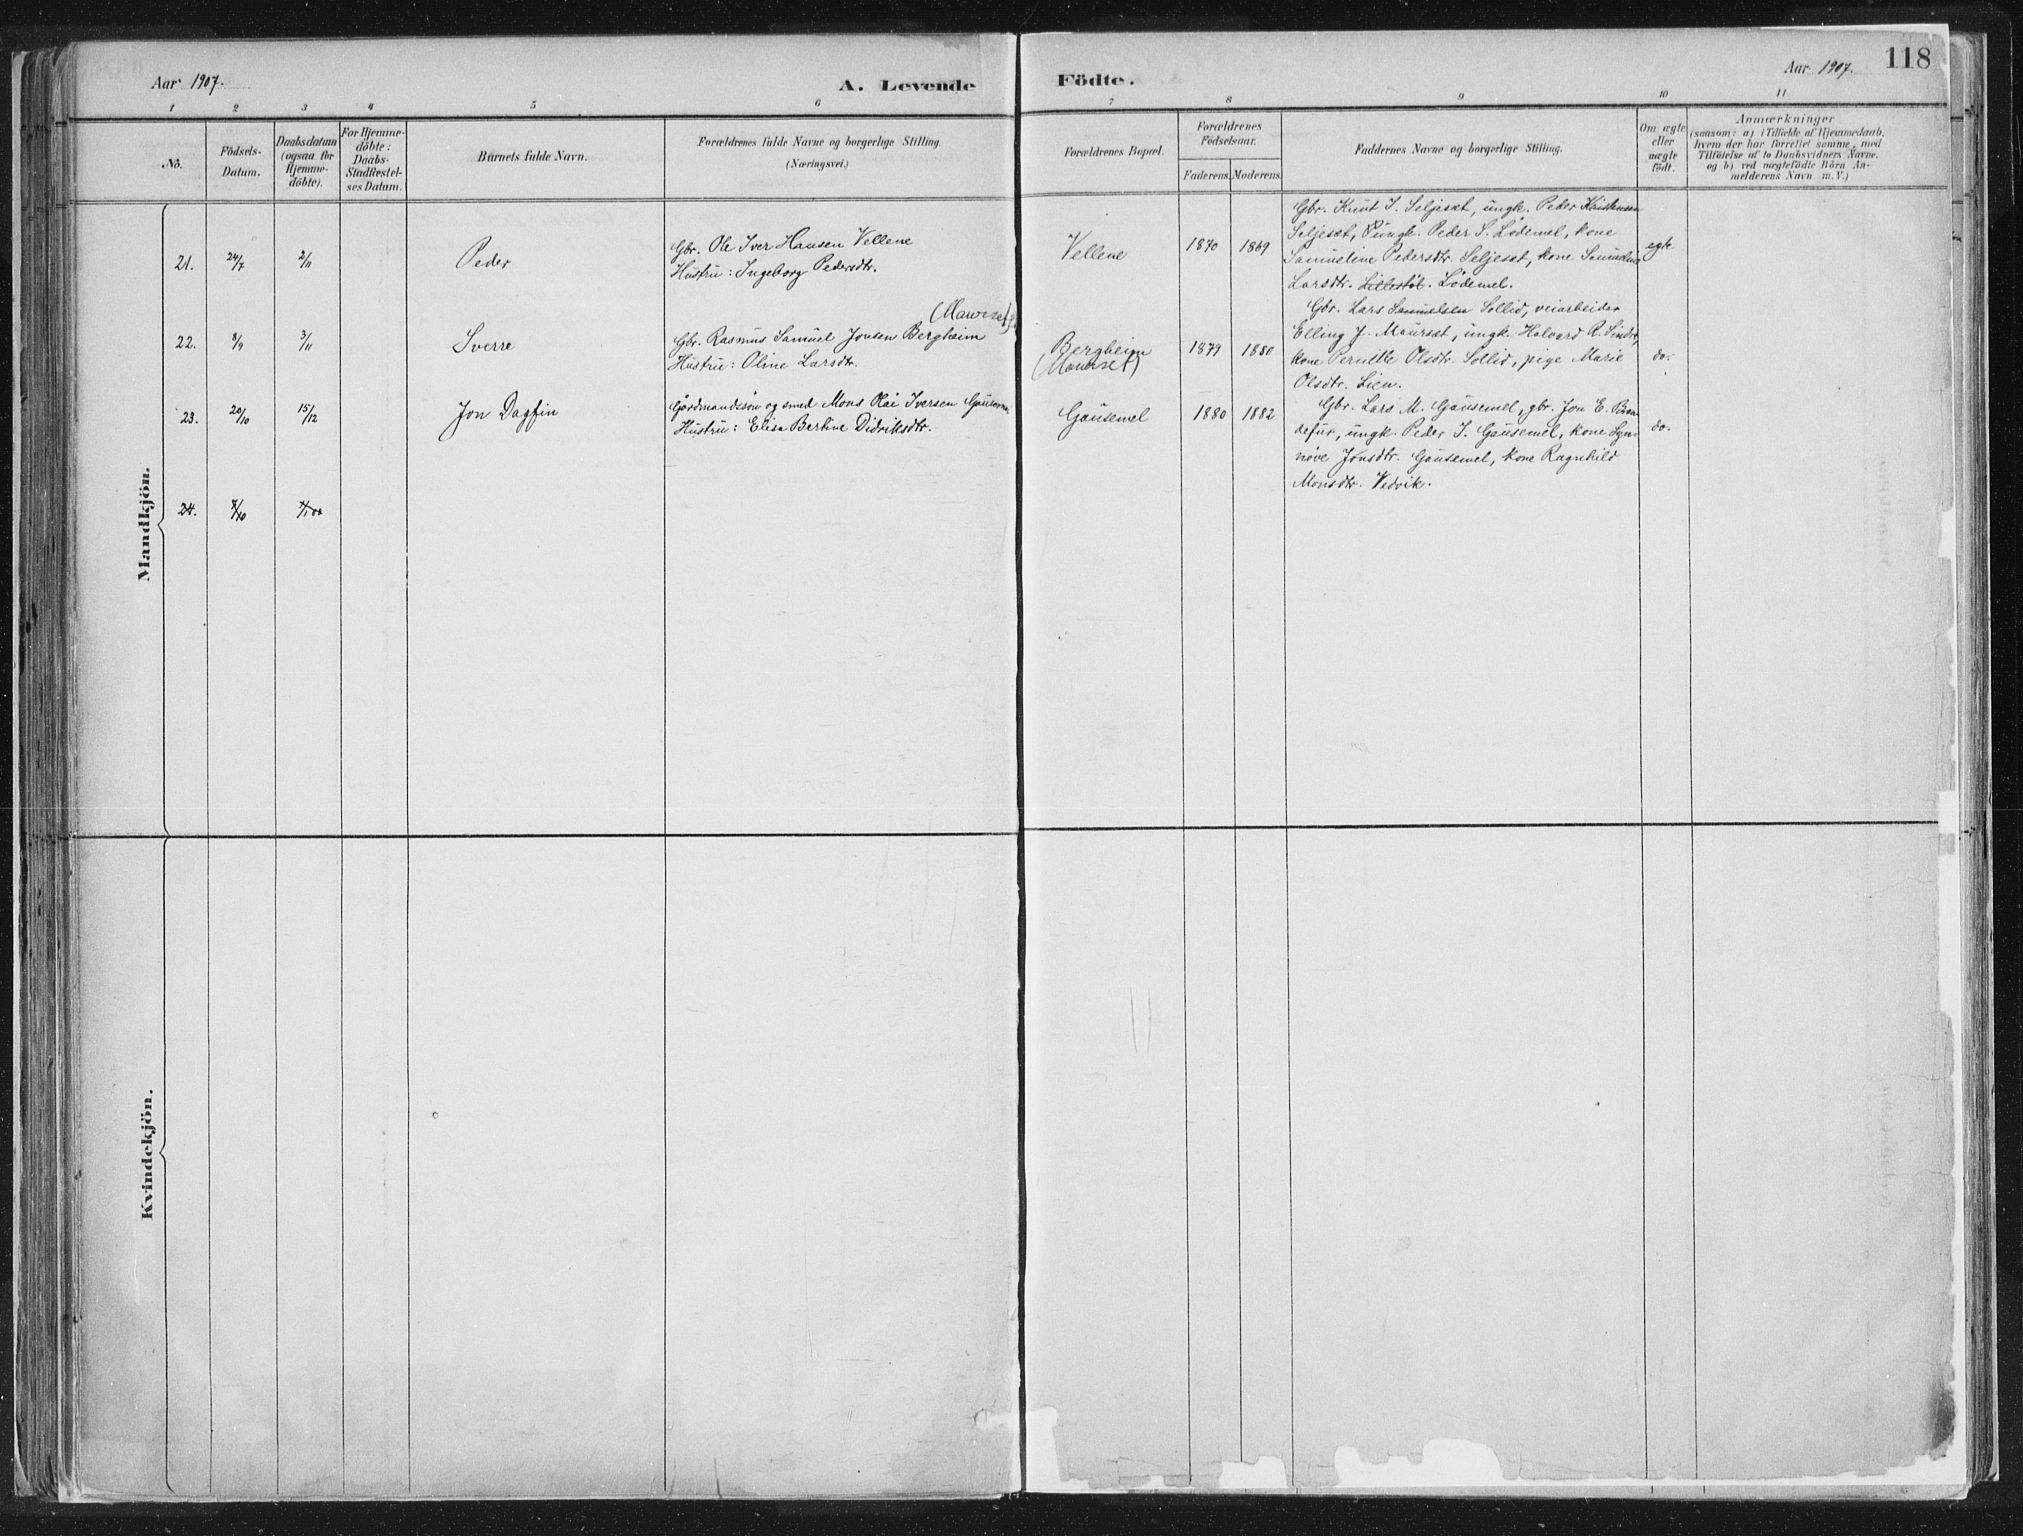 Aar 1907.
A. Levende
Födte.
Aar 1907.
118
1 2 3 4 5 6 7 8 9 10 11
No.
Födsels-
Datum.
Daabsdatum
(ogsaa for
Hjemme-
döbte).
For Hjemme-
döbte:
Daabs-
Stadfæstel-
ses Datum.
Barnets fulde Navn.
Forældrenes fulde Navne og borgerlige Stilling.
(Næringsvei.)
Forældrenes Bopæl.
Forældrenes
Födselsaar.
Faderens. Moderens.
Faddernes Navne og borgerlige Stilling.
Om ægte
eller
uægte
født.
Anmærkninger
(saasom: a) i Tilfælde af Hjemmedaab,
hvem der har forrettet samme, med
Tilföielse af to Daabsvidners Navne,
og b) ved uægtefödte Börn An-
melderens Navn m. V.)
Mandkjön.
21. 24/7 2/11 Peder
Gbr. Ole Iver Hansen Vellene
Hustru: Ingeborg Pedersdtr.
Vellene 1870 1869
Gbr. Knut I. Seljeset, ungk. Peder Kristensen
Seljeset, ungk. Peder S. Lødemel, kone
Samueline Pedersdtr. Seljeset, kone
Larsdtr. Lillestøl. Lødemel.
egte
(Maurset)
22. 8/9 3/11 Sverre
Gbr. Rasmus Samuel Jonsen Bergheim
Hustru: Oline Larsdtr.
Bergheim
(Maurset)
1879 1880
Gbr. Lars Samuelsen Sollid, veiarbeider
Elling J. Maurset, ungk. Halvard R.
kone Pernille Olsdtr. Sollid, pige Marie
Olsdtr. Lien.
do.
23. 20/10 15/12 Jon Dagfin
Gårdmandssøn og smed Mons Olai Iversen
Hustru: Elisa Bertine Didriksdtr.
Gausemel 1880 1882
Gbr. Lars M. Gausemel, gbr. Jon E.
ungk. Peder I. Gausemel, kone Syn-
nøve Jonsdtr. Gausemel, kone Ragnhild
Monsdtr. Vedvik.
do.
24.
Kvindekjön.